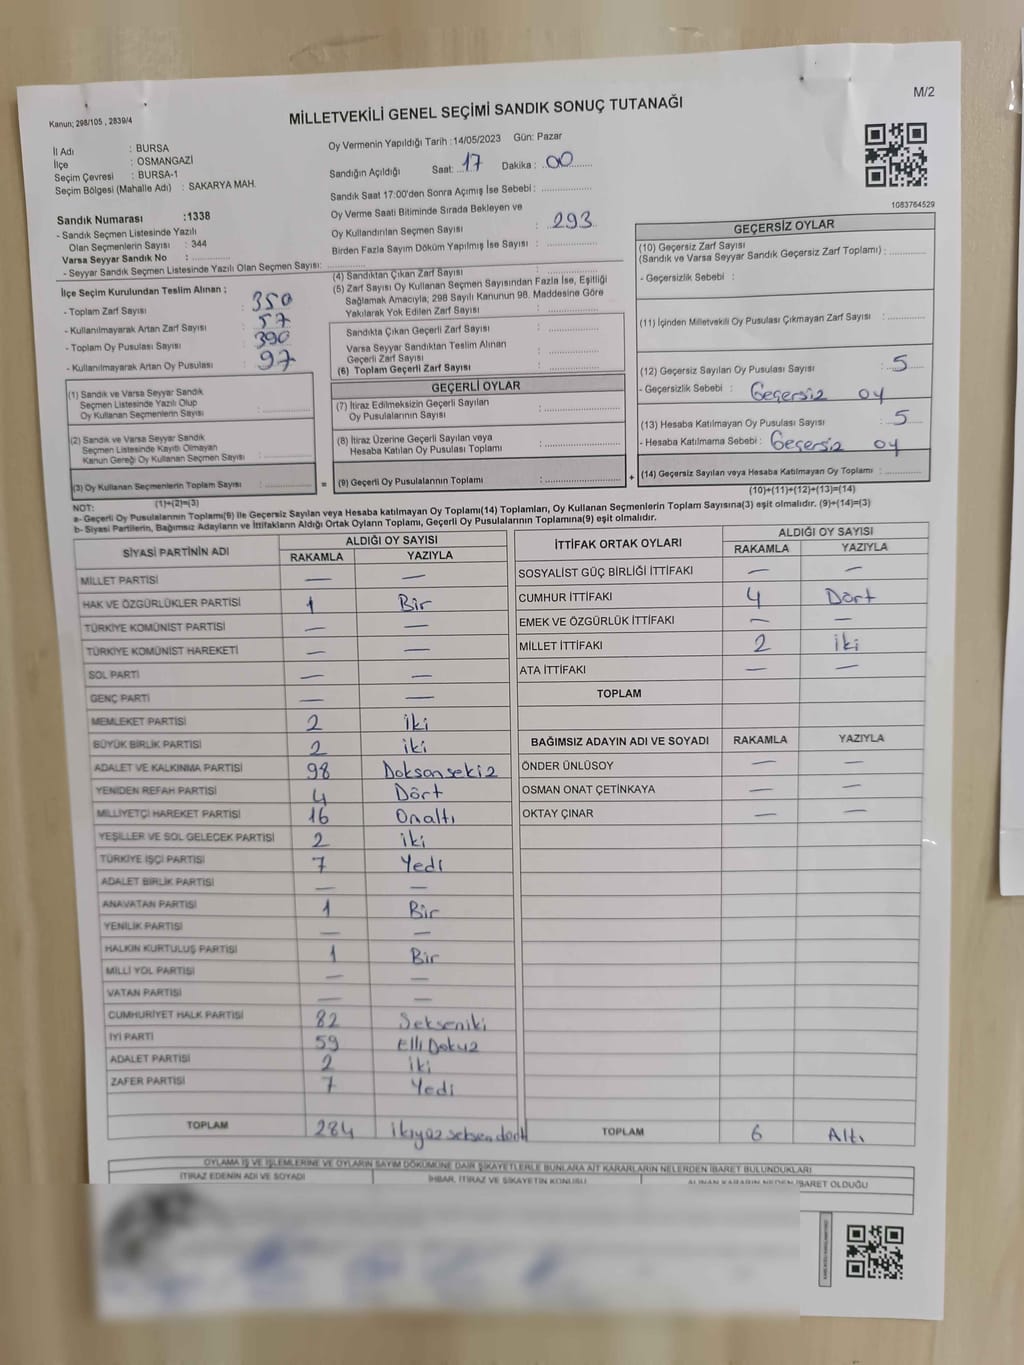 M/2
Kanun; 298/105 , 2839/4
MİLLETVEKİLİ GENEL SEÇİMİ SANDIK SONUÇ TUTANAĞI
İl Adı : BURSA
İlçe : OSMANGAZİ
Seçim Çevresi : BURSA-1
Seçim Bölgesi (Mahalle Adı) : SAKARYA MAH.
Sandık Numarası :1338
- Sandık Seçmen Listesinde Yazılı
Olan Seçmenlerin Sayısı : 344
Varsa Seyyar Sandık No :
- Seyyar Sandık Seçmen Listesinde Yazılı Olan Seçmen Sayısı:
Oy Vermenin Yapıldığı Tarih :14/05/2023 Gün: Pazar
Sandığın Açıldığı Saat: 17 Dakika : 00
Sandık Saat 17:00'den Sonra Açımış İse Sebebi :
Oy Verme Saati Bitiminde Sırada Bekleyen ve
Oy Kullandırılan Seçmen Sayısı : 293
Birden Fazla Sayım Döküm Yapılmış İse Sayısı :
1083764529
İlçe Seçim Kurulundan Teslim Alınan ;
- Toplam Zarf Sayısı : 350
- Kullanılmayarak Artan Zarf Sayısı : 57
- Toplam Oy Pusulası Sayısı : 390
- Kullanılmayarak Artan Oy Pusulası : 97
(1) Sandık ve Varsa Seyyar Sandık
Seçmen Listesinde Yazılı Olup
Oy Kullanan Seçmenlerin Sayısı :
(2) Sandık ve Varsa Seyyar Sandık
Seçmen Listesinde Kayıtlı Olmayan
Kanun Gereği Oy Kullanan Seçmen Sayısı :
(3) Oy Kullanan Seçmenlerin Toplam Sayısı : =
(1)+(2)=(3)
(4) Sandıktan Çıkan Zarf Sayısı :
(5) Zarf Sayısı Oy Kullanan Seçmen Sayısından Fazla İse, Eşitliği
Sağlamak Amacıyla; 298 Sayılı Kanunun 98. Maddesine Göre
Yakılarak Yok Edilen Zarf Sayısı :
Sandıkta Çıkan Geçerli Zarf Sayısı :
Varsa Seyyar Sandıktan Teslim Alınan
Geçerli Zarf Sayısı :
(6) Toplam Geçerli Zarf Sayısı :
GEÇERLİ OYLAR
(7) İtiraz Edilmeksizin Geçerli Sayılan
Oy Pusulalarının Sayısı :
(8) İtiraz Üzerine Geçerli Sayılan veya
Hesaba Katılan Oy Pusulası Toplamı :
(9) Geçerli Oy Pusulalarının Toplamı : +
GEÇERSİZ OYLAR
(10) Geçersiz Zarf Sayısı
(Sandık ve Varsa Seyyar Sandık Geçersiz Zarf Toplamı) :
- Geçersizlik Sebebi :
(11) İçinden Milletvekili Oy Pusulası Çıkmayan Zarf Sayısı :
(12) Geçersiz Sayılan Oy Pusulası Sayısı : 5
- Geçersizlik Sebebi : Geçersiz oy
(13) Hesaba Katılmayan Oy Pusulası Sayısı : 5
- Hesaba Katılmama Sebebi : Geçersiz oy
(14) Geçersiz Sayılan veya Hesaba Katılmayan Oy Toplamı :
(10)+(11)+(12)+(13)=(14)
NOT:
a- Geçerli Oy Pusulalarının Toplamı(9) ile Geçersiz Sayılan veya Hesaba katılmayan Oy Toplamı(14) Toplamları, Oy Kullanan Seçmenlerin Toplam Sayısına(3) eşit olmalıdır. (9)+(14)=(3)
b- Siyasi Partilerin, Bağımsız Adayların ve İttifakların Aldığı Ortak Oyların Toplamı, Geçerli Oy Pusulalarının Toplamına(9) eşit olmalıdır.
SİYASİ PARTİNİN ADI ALDIĞI OY SAYISI
RAKAMLA YAZIYLA
MİLLET PARTİSİ — —
HAK VE ÖZGÜRLÜKLER PARTİSİ 1 Bir
TÜRKİYE KOMÜNİST PARTİSİ — —
TÜRKİYE KOMÜNİST HAREKETİ — —
SOL PARTİ — —
GENÇ PARTİ — —
MEMLEKET PARTİSİ 2 iki
BÜYÜK BİRLİK PARTİSİ 2 iki
ADALET VE KALKINMA PARTİSİ 98 Doksansekiz
YENİDEN REFAH PARTİSİ 4 Dört
MİLLİYETÇİ HAREKET PARTİSİ 16 Onaltı
YEŞİLLER VE SOL GELECEK PARTİSİ 2 iki
TÜRKİYE İŞÇİ PARTİSİ 7 Yedi
ADALET BİRLİK PARTİSİ — —
ANAVATAN PARTİSİ 1 Bir
YENİLİK PARTİSİ — —
HALKIN KURTULUŞ PARTİSİ 1 Bir
MİLLİ YOL PARTİSİ — —
VATAN PARTİSİ — —
CUMHURİYET HALK PARTİSİ 82 Sekseniki
İYİ PARTİ 59 Elli Dokuz
ADALET PARTİSİ 2 iki
ZAFER PARTİSİ 7 Yedi
TOPLAM 284 ikiyüzseksendört
İTTİFAK ORTAK OYLARI ALDIĞI OY SAYISI
RAKAMLA YAZIYLA
SOSYALİST GÜÇ BİRLİĞİ İTTİFAKI — —
CUMHUR İTTİFAKI 4 Dört
EMEK VE ÖZGÜRLÜK İTTİFAKI — —
MİLLET İTTİFAKI 2 iki
ATA İTTİFAKI — —
TOPLAM
BAĞIMSIZ ADAYIN ADI VE SOYADI RAKAMLA YAZIYLA
ÖNDER ÜNLÜSOY — —
OSMAN ONAT ÇETİNKAYA — —
OKTAY ÇINAR — —
TOPLAM 6 Altı
OYLAMA İŞ VE İŞLEMLERİNE VE OYLARIN SAYIM DÖKÜMÜNE DAİR ŞİKAYETLERLE BUNLARA AİT KARARLARIN NELERDEN İBARET BULUNDUKLARI
İTİRAZ EDENİN ADI VE SOYADI İHBAR, İTİRAZ VE ŞİKAYETİN KONUSU ALINAN KARARIN NEDEN İBARET OLDUĞU